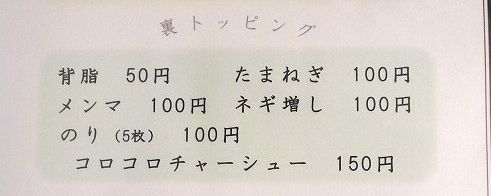 裏トッピング
背脂 50円 たまねぎ 100円
メンマ 100円 ネギ増し 100円
のり(5枚) 100円
コロコロチャーシュー 150円